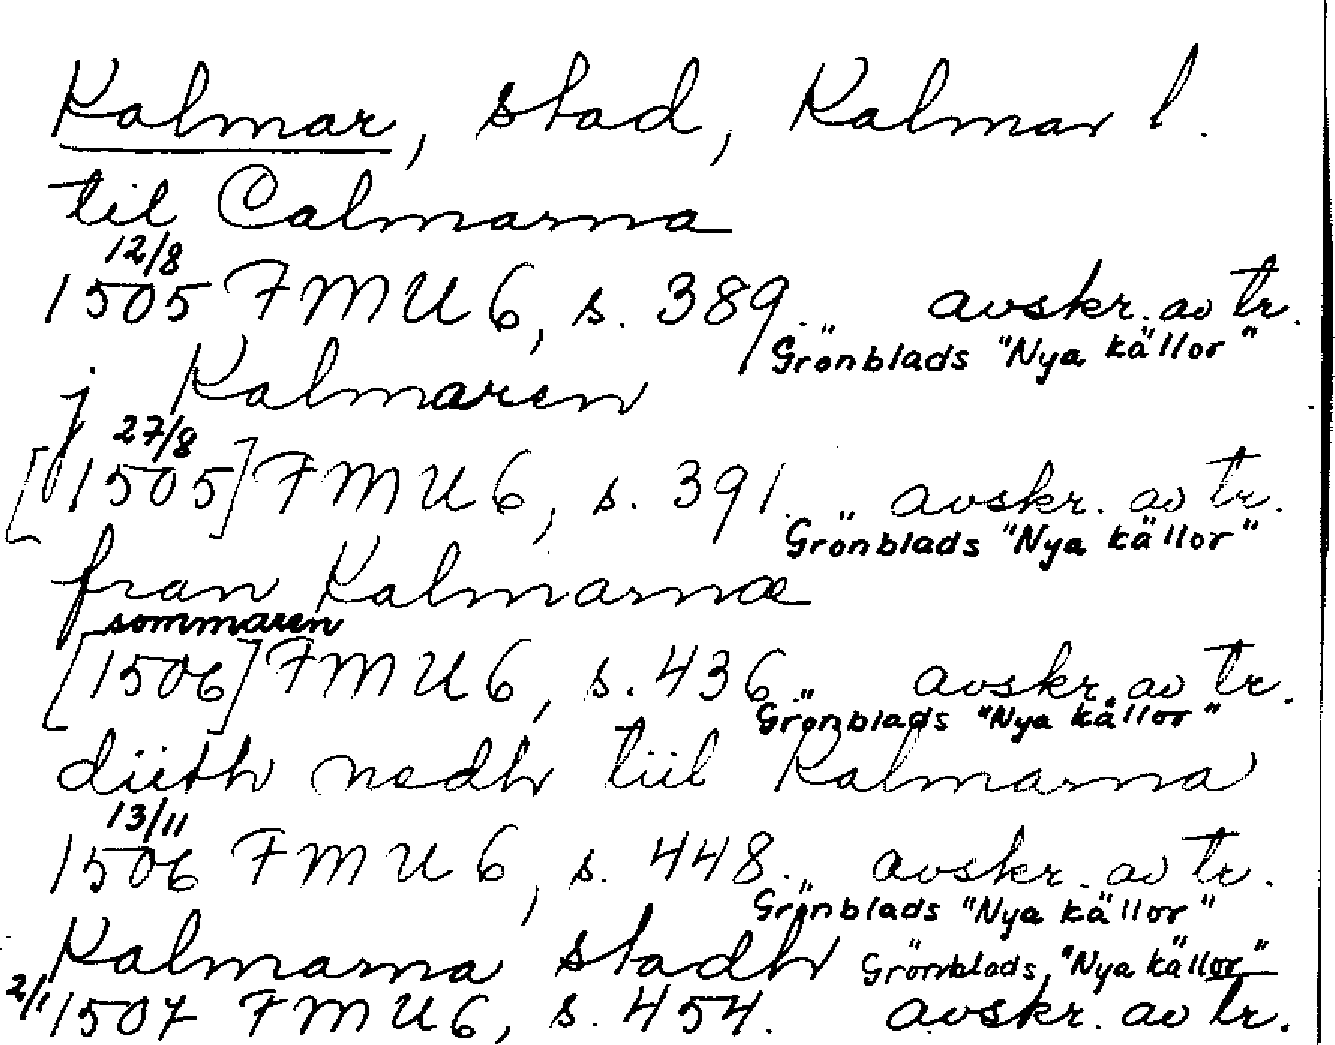 Kalmar, stad, Kalmar l.
til Calmarna
12/8
1505 FMU 6, s. 389. avskr. av tr.
Grönblads "Nya källor"
j Kalmaren
27/8
[1505] FMU 6, s. 391. avskr. av tr.
Grönblads "Nya källor"
fran Kalmarnæ
sommaren
[1506] FMU 6, s. 436. avskr. av tr.
Grönblads "Nya källor"
diith nedh tiil Kalmarna
13/11
1506 FMU 6, s. 448. avskr. av tr.
Grönblads "Nya källor"
Kalmarna stadh Grönblads, "Nya källor"
2/1 1507 FMU 6, s. 454. avskr. av tr.